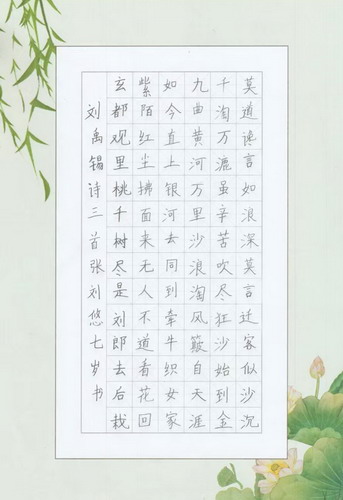 莫道谗言如浪深莫言迁客似沙沉
千淘万漉虽辛苦吹尽狂沙始到金
九曲黄河万里沙浪淘风簸自天涯
如今直上银河去同到牵牛织女家
紫陌红尘拂面来无人不道看花回
玄都观里桃千树尽是刘郎去后栽
刘禹锡诗三首张刘悠七岁书